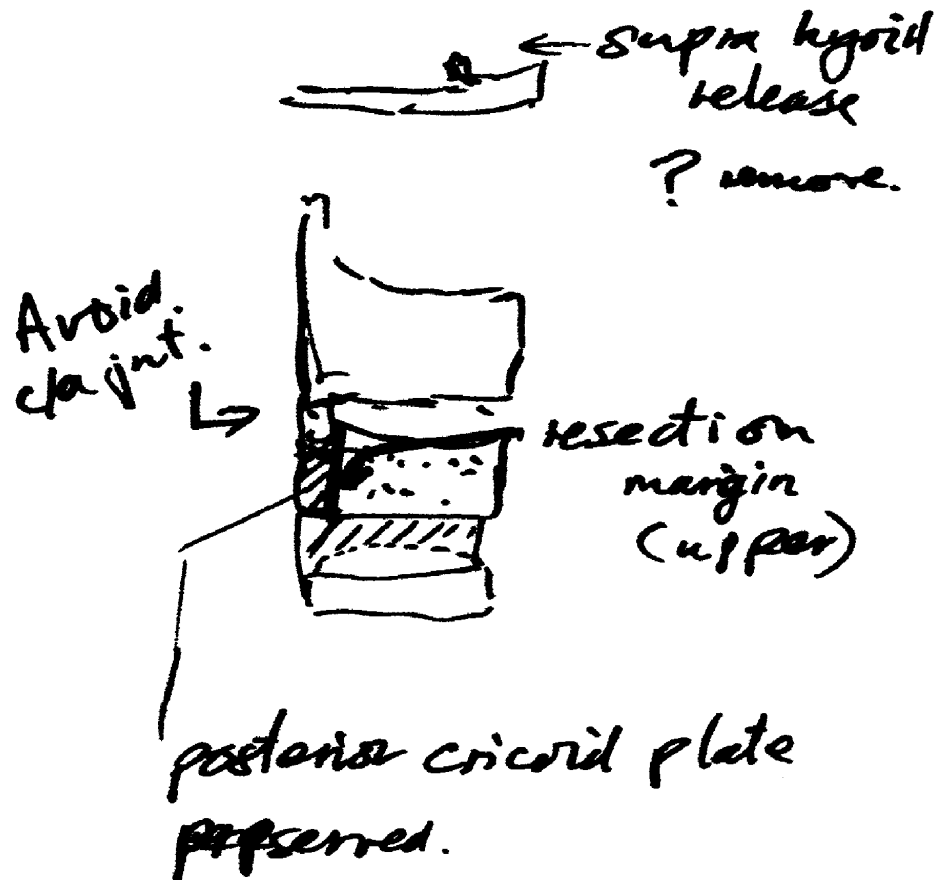 ← supra hyoid
release
? remove.
Avoid.
c/a jnt.
resection
margin
(upper)
posterior cricoid plate
preserved.